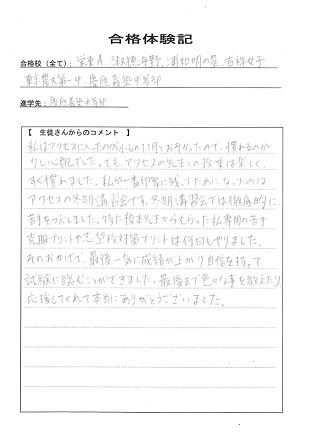 合格体験記
合格校（全て）：栄東A、淑徳与野、浦和明の星、吉祥女子
東京農大第一中、慶應義塾中等部
進学先：慶應義塾中等部
【 生徒さんからのコメント 】
私はアクセスに入ったのが小6の11月とおそかったので、慣れるのか
少し心配でした。でも、アクセスの先生との授業は楽しく、
すぐ慣れました。私が一番印象に残ってためになったのは
アクセスの冬期講習会です。冬期講習会では徹底的に
苦手をつぶしました。特に先生からもらった私専用の苦手
克服プリントや志望校対策プリントは何回もやりました。
そのおかげで、最後一気に成績が上がり自信を持って
試験に臨むことができました。最後まで色々な事を教えたり
応援してくれて本当にありがとうございました。